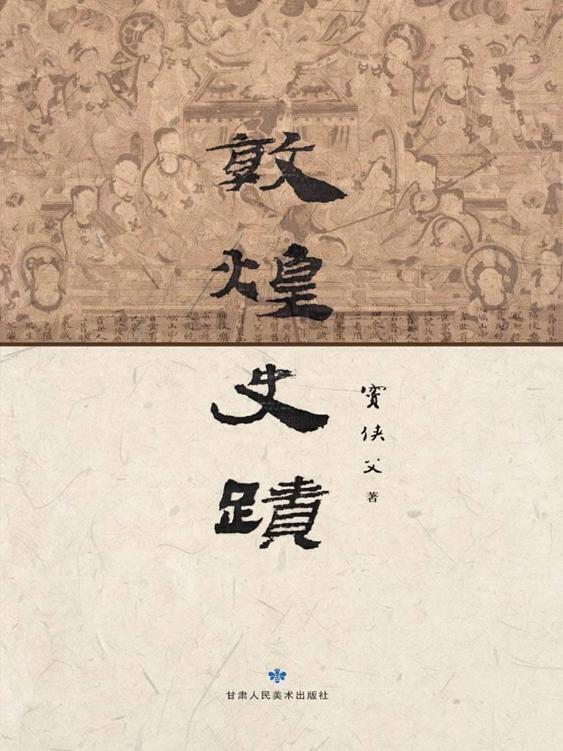 敦煌史蹟
竇侠父
著
甘肃人民美术出版社